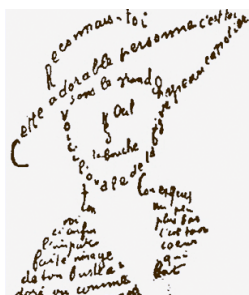 Reconnais-toi
Cette adorable personne c'est toi
Sous le grand chapeau canotier
Œil
Nez
la bouche
Voici l'ovale de ta figure
ton
Cou exquis
voi
ci enfin
l'impar
faite image
de ton buste a
doré vu comme
un peu
plus bas
c'est ton
coeur
qui
bat